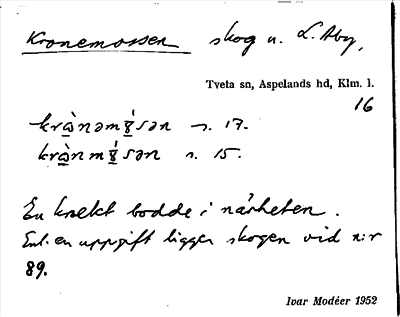 Kronemossen skog u. L. Aby,
Tveta sn, Aspelands hd, Klm. l.
16
krànəmɣ́sən s. 17.
krànmɣ́sən s. 15.
En knekt bodde i närheten.
Enl. en uppgift ligger skogen vid n:r
89.
Ivar Modéer 1952